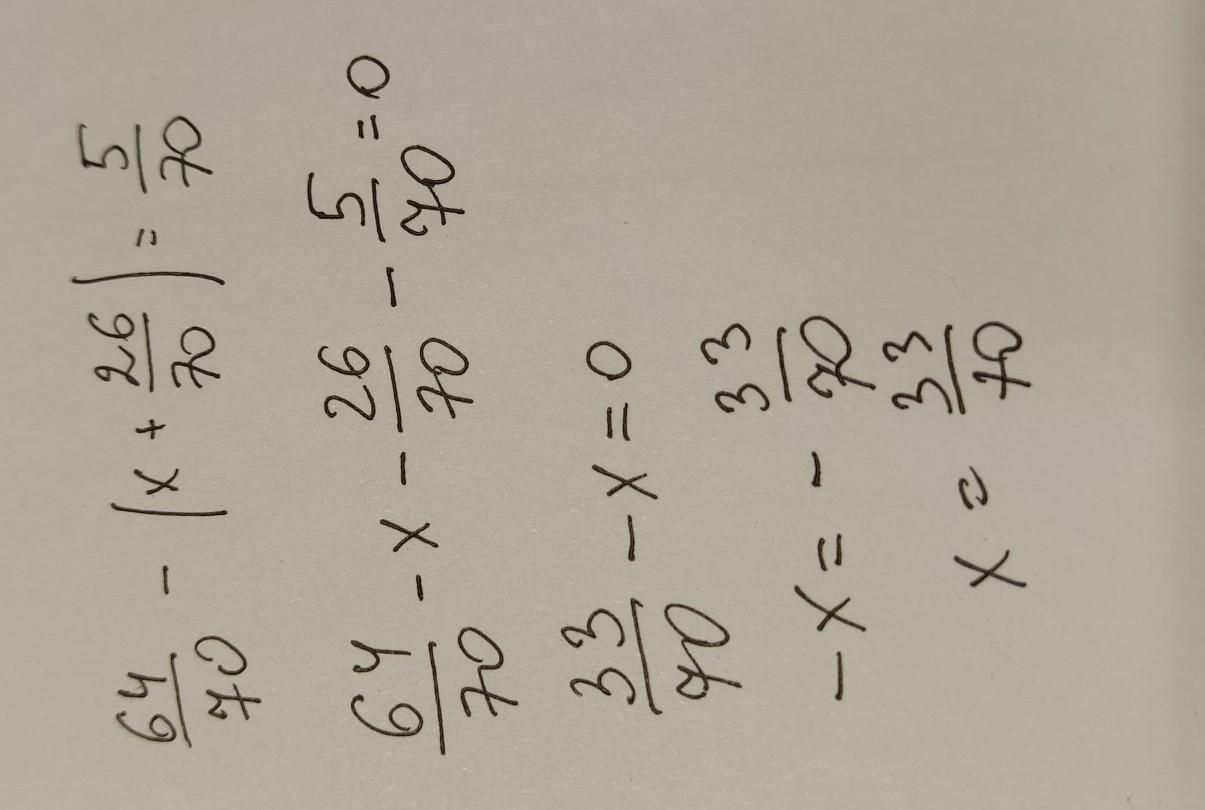 64/70 - (x + 26/70) = 5/70
64/70 - x - 26/70 - 5/70 = 0
33/70 - x = 0
-x = - 33/70
x = 33/70